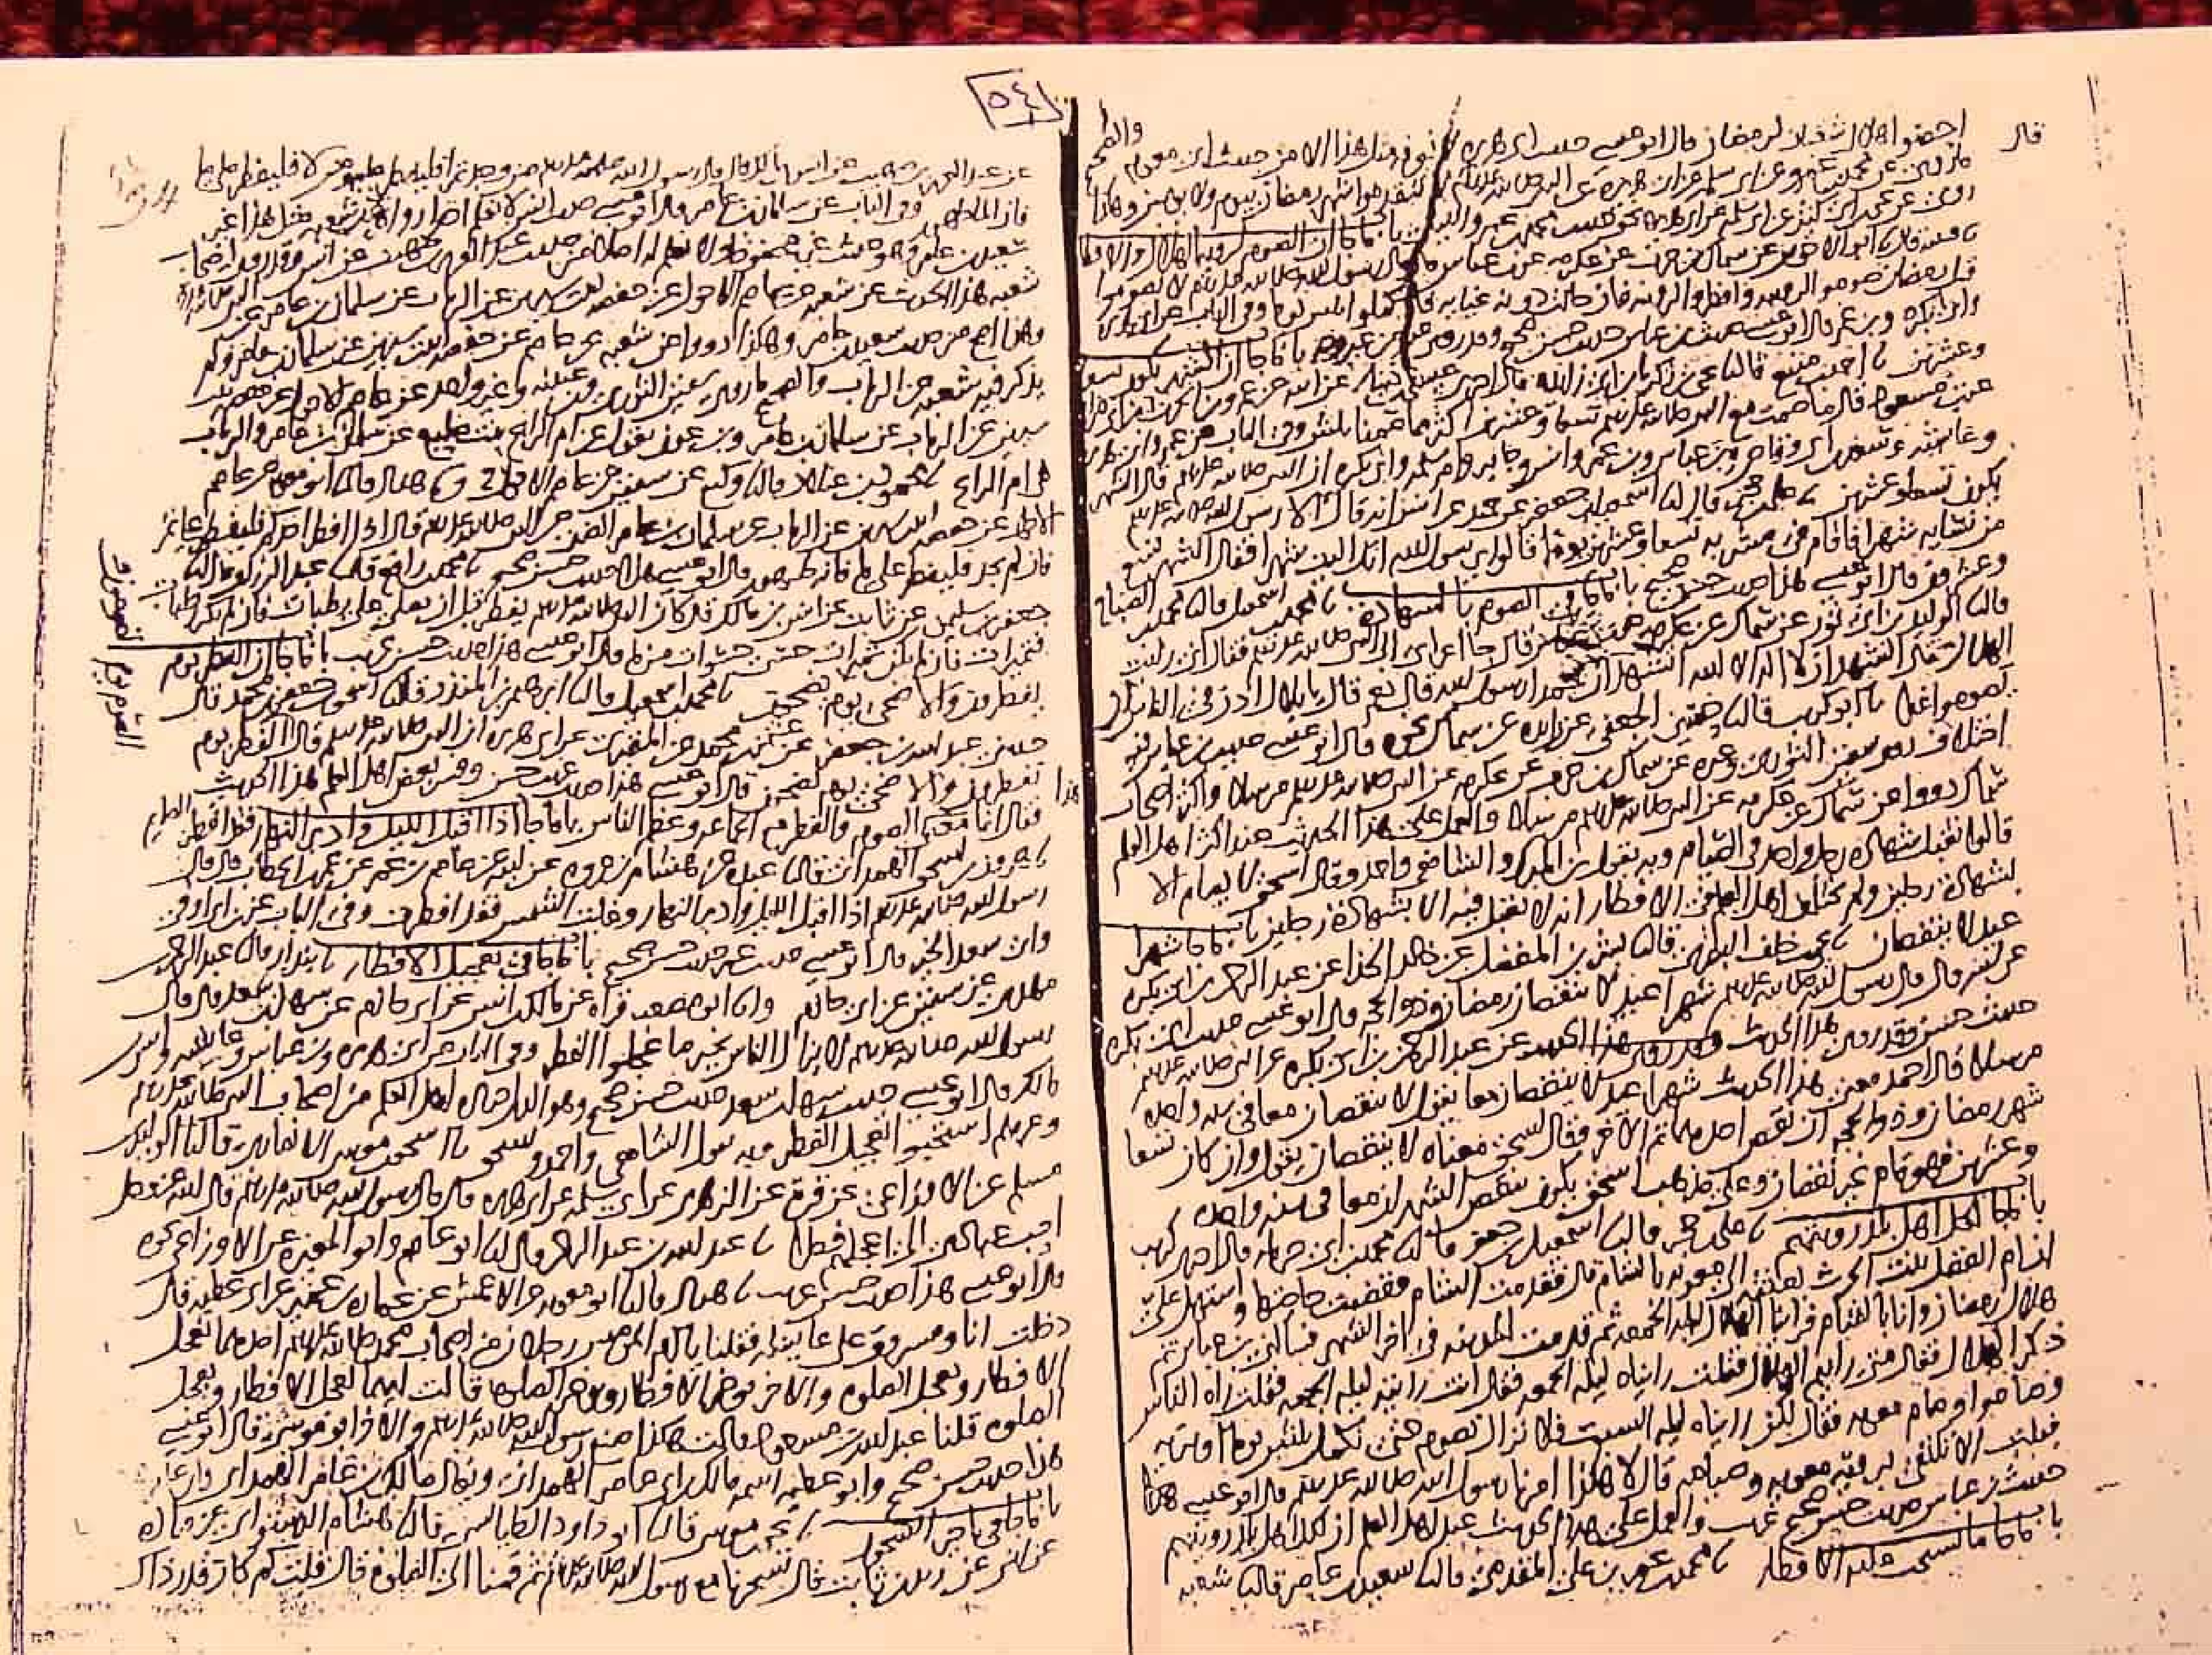 ٥٤
قال
احصوا هلال شعبان لرمضان قال ابو عيسى حديث ابي هريرة لا نعرفه مثل هذا الا من حديث ابي معوية والصحيح
ما روي عن محمد بن عمرو عن ابي سلمة عن ابي هريرة عن النبي صلى الله عليه وسلم لا تقدموا شهر رمضان بيوم ولا يومين وهكذا
روي عن يحيى بن ابي كثير عن ابي سلمة عن ابي هريرة نحو حديث محمد بن عمرو والليثي باب ما جا ان الصوم لروية الهلال والافطار
نا قتيبة قال نا ابو الاحوص عن سماك بن حرب عن عكرمة عن ابن عباس قال قال رسول الله صلى الله عليه وسلم لا تصوموا
قبل رمضان صوموا لرويته وافطروا لرويته فان حالت دونه غيابة فاكملوا ثلثين يوما وفي الباب عن ابي هريرة
وابي بكرة وبن عمر قال ابو عيسى حديث بن عباس حديث حسن صحيح وقد روي عنه من غير وجه باب ما جا ان الشهر يكون تسعا
وعشرين نا احمد بن منيع قال نا يحيى بن زكريا بن ابي زائدة قال اخبرني عيسى بن دينار عن ابيه عن عمرو بن الحرث بن ابي ضرار
عن بن مسعود قال ما صمت مع النبي صلى الله عليه وسلم تسعا وعشرين اكثر مما صمنا ثلثين وفي الباب عن عمر وابي هريرة
وعايشة وسعد بن ابي وقاص وبن عباس وبن عمر وانس وجابر وام سلمة وابي بكرة ان النبي صلى الله عليه وسلم قال الشهر
يكون تسعا وعشرين نا علي بن حجر قال نا اسمعيل بن جعفر عن حميد عن انس انه قال الا رسول الله صلى الله عليه وسلم
من نسايه شهرا فاقام في مشربة تسعا وعشرين يوما قالوا يرسول الله انك اليت شهرا فقال الشهر تسع
وعشرون قال ابو عيسى هذا حديث حسن صحيح باب ما جا في الصوم بالشهادة نا محمد بن اسمعيل قال نا محمد بن الصباح
قال نا الوليد بن ابي ثور عن سماك عن عكرمة عن بن عباس قال جا اعرابي الى النبي صلى الله عليه وسلم فقال اني رايت
الهلال قال اتشهد ان لا اله الا الله اتشهد ان محمدا رسول الله قال نعم قال يا بلال اذن في الناس ان
يصوموا غدا نا ابو كريب قال نا حسين الجعفي عن زايدة عن سماك نحوه قال ابو عيسى حديث بن عباس فيه
اختلاف روى سفين الثوري وغيره عن سماك بن حرب عن عكرمة عن النبي صلى الله عليه وسلم مرسلا واكثر اصحاب
سماك رووا عن سماك عن عكرمة عن النبي صلى الله عليه وسلم مرسلا والعمل على هذا الحديث عند اكثر اهل العلم
قالوا تقبل شهادة رجل واحد في الصيام وبه يقول بن المبرك والشافعي واحمد وقال اسحق لا يصام الا
بشهادة رجلين ولم يختلف اهل العلم في الافطار انه لا يقبل فيه الا بشهادة رجلين باب ما جا شهرا
عيد لا ينقصان نا يحيى بن خلف البصري قال نا بشر بن المفضل عن خالد الحذا عن عبد الرحمن بن ابي بكرة
عن ابيه قال قال رسول الله صلى الله عليه وسلم شهرا عيد لا ينقصان رمضان وذو الحجة قال ابو عيسى حديث ابي بكرة
حديث حسن وقد روي هذا الحديث عن عبد الرحمن بن ابي بكرة عن النبي صلى الله عليه وسلم
مرسلا قال احمد معنى هذا الحديث شهرا عيد لا ينقصان معا يقول لا ينقصان معا في سنة واحدة
شهر رمضان وذو الحجة ان نقص احدهما تم الاخر وقال اسحق معناه لا ينقصان يقول وان كان تسعا
وعشرين فهو تمام غير نقصان وعلى مذهب اسحق يكون ينقص الشهران معا في سنة واحدة
باب ما جا لكل اهل بلد رويتهم نا علي بن حجر قال نا اسمعيل بن جعفر قال نا محمد بن ابي حرملة قال اخبرني كريب
ان ام الفضل بنت الحرث بعثته الى معوية بالشام قال فقدمت الشام فقضيت حاجتها واستهل علي
هلال رمضان وانا بالشام فراينا الهلال ليلة الجمعة ثم قدمت المدينة في اخر الشهر فسالني بن عباس ثم
ذكر الهلال فقال متى رايتم الهلال فقلت رايناه ليلة الجمعة فقال انت رايته ليلة الجمعة فقلت راه الناس
وصاموا وصام معوية فقال لكن رايناه ليلة السبت فلا نزال نصوم حتى نكمل ثلثين يوما او نريه
فقلت الا تكتفي بروية معوية وصيامه قال لا هكذا امرنا رسول الله صلى الله عليه وسلم قال ابو عيسى هذا
حديث بن عباس حديث حسن صحيح غريب والعمل على هذا الحديث عند اهل العلم ان لكل اهل بلد رويتهم
باب ما جا ما يستحب عليه الافطار نا محمد بن عمر بن علي المقدمي قال نا سعيد بن عامر قال نا شعبة
عن عبد العزيز بن صهيب عن انس بن مالك قال قال رسول الله صلى الله عليه وسلم من وجد تمرا فليفطر عليه ومن لا فليفطر على ما
فان الما طهور وفي الباب عن سلمان بن عامر قال ابو عيسى حديث انس لا نعلم احدا رواه عن شعبة مثل هذا غير
سعيد بن عامر وهو حديث غير محفوظ ولا نعلم له اصلا من حديث عبد العزيز بن صهيب عن انس وقد روى اصحاب
شعبة هذا الحديث عن شعبة عن عاصم الاحول عن حفصة بنت سيرين عن الرباب عن سلمان بن عامر عن النبي صلى الله عليه وسلم
وهذا اصح من حديث سعيد بن عامر وهكذا رووا عن شعبة عن عاصم عن حفصة بنت سيرين عن سلمان بن عامر ولم
يذكر فيه شعبة عن الرباب والصحيح ما روى سفين الثوري وبن عيينة وغير واحد عن عاصم الاحول عن حفصة بنت
سيرين عن الرباب عن سلمان بن عامر وبن عون يقول عن ام الرايح بنت صليع عن سلمان بن عامر والرباب
هي ام الرايح نا محمود بن غيلان قال نا وكيع عن سفين عن عاصم الاحول ح ونا هناد قال نا ابو معوية عن عاصم
الاحول عن حفصة بنت سيرين عن الرباب عن سلمان بن عامر الضبي عن النبي صلى الله عليه وسلم قال اذا افطر احدكم فليفطر على تمر
فان لم يجد فليفطر على ما فانه طهور قال ابو عيسى هذا حديث حسن صحيح نا محمد بن رافع قال نا عبد الرزاق قال نا
جعفر بن سليمن عن ثابت عن انس بن مالك قال كان النبي صلى الله عليه وسلم يفطر قبل ان يصلي على رطبات فان لم تكن رطبات
فتميرات فان لم تكن تميرات حسى حسوات من ما قال ابو عيسى هذا حديث حسن غريب باب ما جا ان الفطر يوم
يفطرون والاضحى يوم يضحون نا محمد بن اسمعيل قال نا ابرهيم بن المنذر قال نا اسحق بن جعفر بن محمد قال
حدثني عبد الله بن جعفر عن عثمن بن محمد عن المقبري عن ابي هريرة ان النبي صلى الله عليه وسلم قال الفطر يوم
الصوم يوم تصومون
تفطرون والاضحى يوم تضحون قال ابو عيسى هذا حديث غريب حسن وفسر بعض اهل العلم هذا الحديث
هذا
فقال انما معنى الصوم والفطر مع الجماعة وعظم الناس باب ما جا اذا اقبل الليل وادبر النهار فقد افطر الصايم
نا هرون بن اسحق الهمداني قال نا عبدة عن هشام بن عروة عن ابيه عن عاصم بن عمر عن عمر بن الخطاب قال قال
رسول الله صلى الله عليه وسلم اذا اقبل الليل وادبر النهار وغابت الشمس فقد افطرت وفي الباب عن بن ابي اوفى
وابي سعيد الخير قال ابو عيسى حديث عمر حديث حسن صحيح باب ما جا في تعجيل الافطار نا بندار قال نا عبد الرحمن بن
مهدي عن سفين عن ابي حازم ونا ابو مصعب قراة عن مالك بن انس عن ابي حازم عن سهل بن سعد قال قال
رسول الله صلى الله عليه وسلم لا يزال الناس بخير ما عجلوا الفطر وفي الباب عن ابي هريرة وبن عباس وعايشة وانس بن
مالك قال ابو عيسى حديث سهل بن سعد حديث حسن صحيح وهو الذي اختاره اهل العلم من اصحاب النبي صلى الله عليه وسلم
وغيرهم استحبوا تعجيل الفطر وبه يقول الشافعي واحمد واسحق نا اسحق بن موسى الانصاري قال نا الوليد بن
مسلم عن الاوزاعي عن قرة عن الزهري عن ابي سلمة عن ابي هريرة قال قال رسول الله صلى الله عليه وسلم قال الله عز وجل
احب عبادي الي اعجلهم فطرا نا عبد الله بن عبد الرحمن قال نا ابو عاصم وابو المغيرة عن الاوزاعي نحوه
قال ابو عيسى هذا حديث حسن غريب نا هناد قال نا ابو معوية عن الاعمش عن عمارة بن عمير عن ابي عطية قال
دخلت انا ومسروق على عايشة فقلنا يا ام المومنين رجلان من اصحاب محمد صلى الله عليه وسلم احدهما يعجل
الافطار ويعجل الصلوة والاخر يوخر الافطار ويوخر الصلوة قالت ايهما يعجل الافطار ويعجل
الصلوة قلنا عبد الله بن مسعود قالت هكذا صنع رسول الله صلى الله عليه وسلم والاخر ابو موسى قال ابو عيسى
هذا حديث حسن صحيح وابو عطية اسمه مالك بن ابي عامر الهمداني ويقال مالك بن عامر الهمداني
باب ما جا في تاخير السحور نا يحيى بن موسى قال نا ابو داود الطيالسي قال نا هشام الدستوائي عن قتادة
عن انس عن زيد بن ثابت قال تسحرنا مع رسول الله صلى الله عليه وسلم ثم قمنا الى الصلوة قال قلت كم كان قدر ذاك